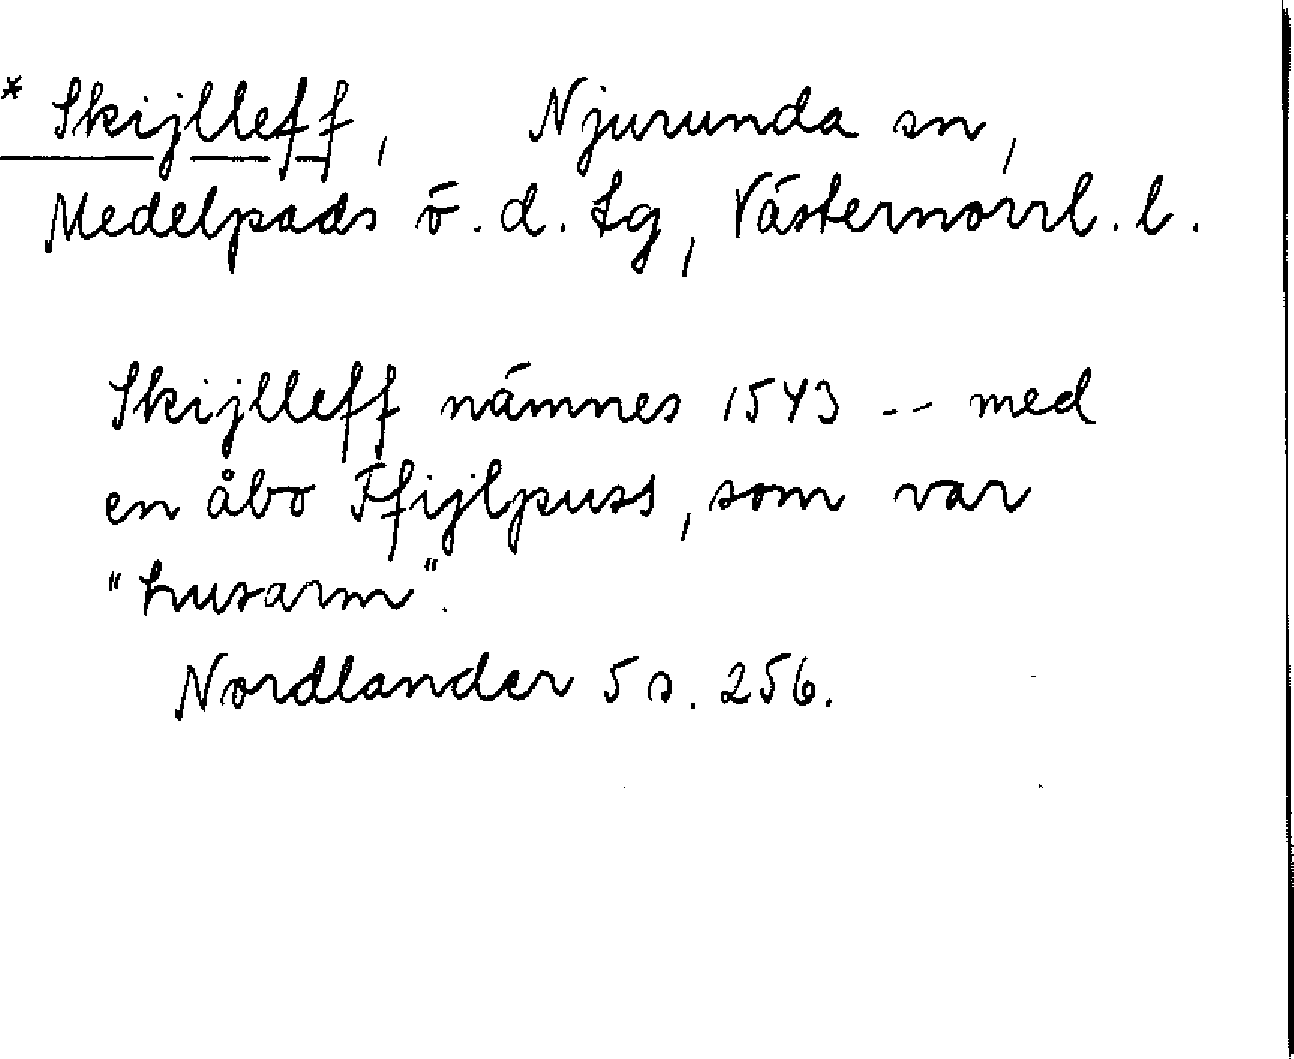 * Skijlleff, Njurunda sn,
Medelpads ö. d. tg, Västernorrl. l.
Skijlleff nämnes 1543 -- med
en åbo Ffijlpuss, som var
"husarm".
Nordlander 5 s. 256.